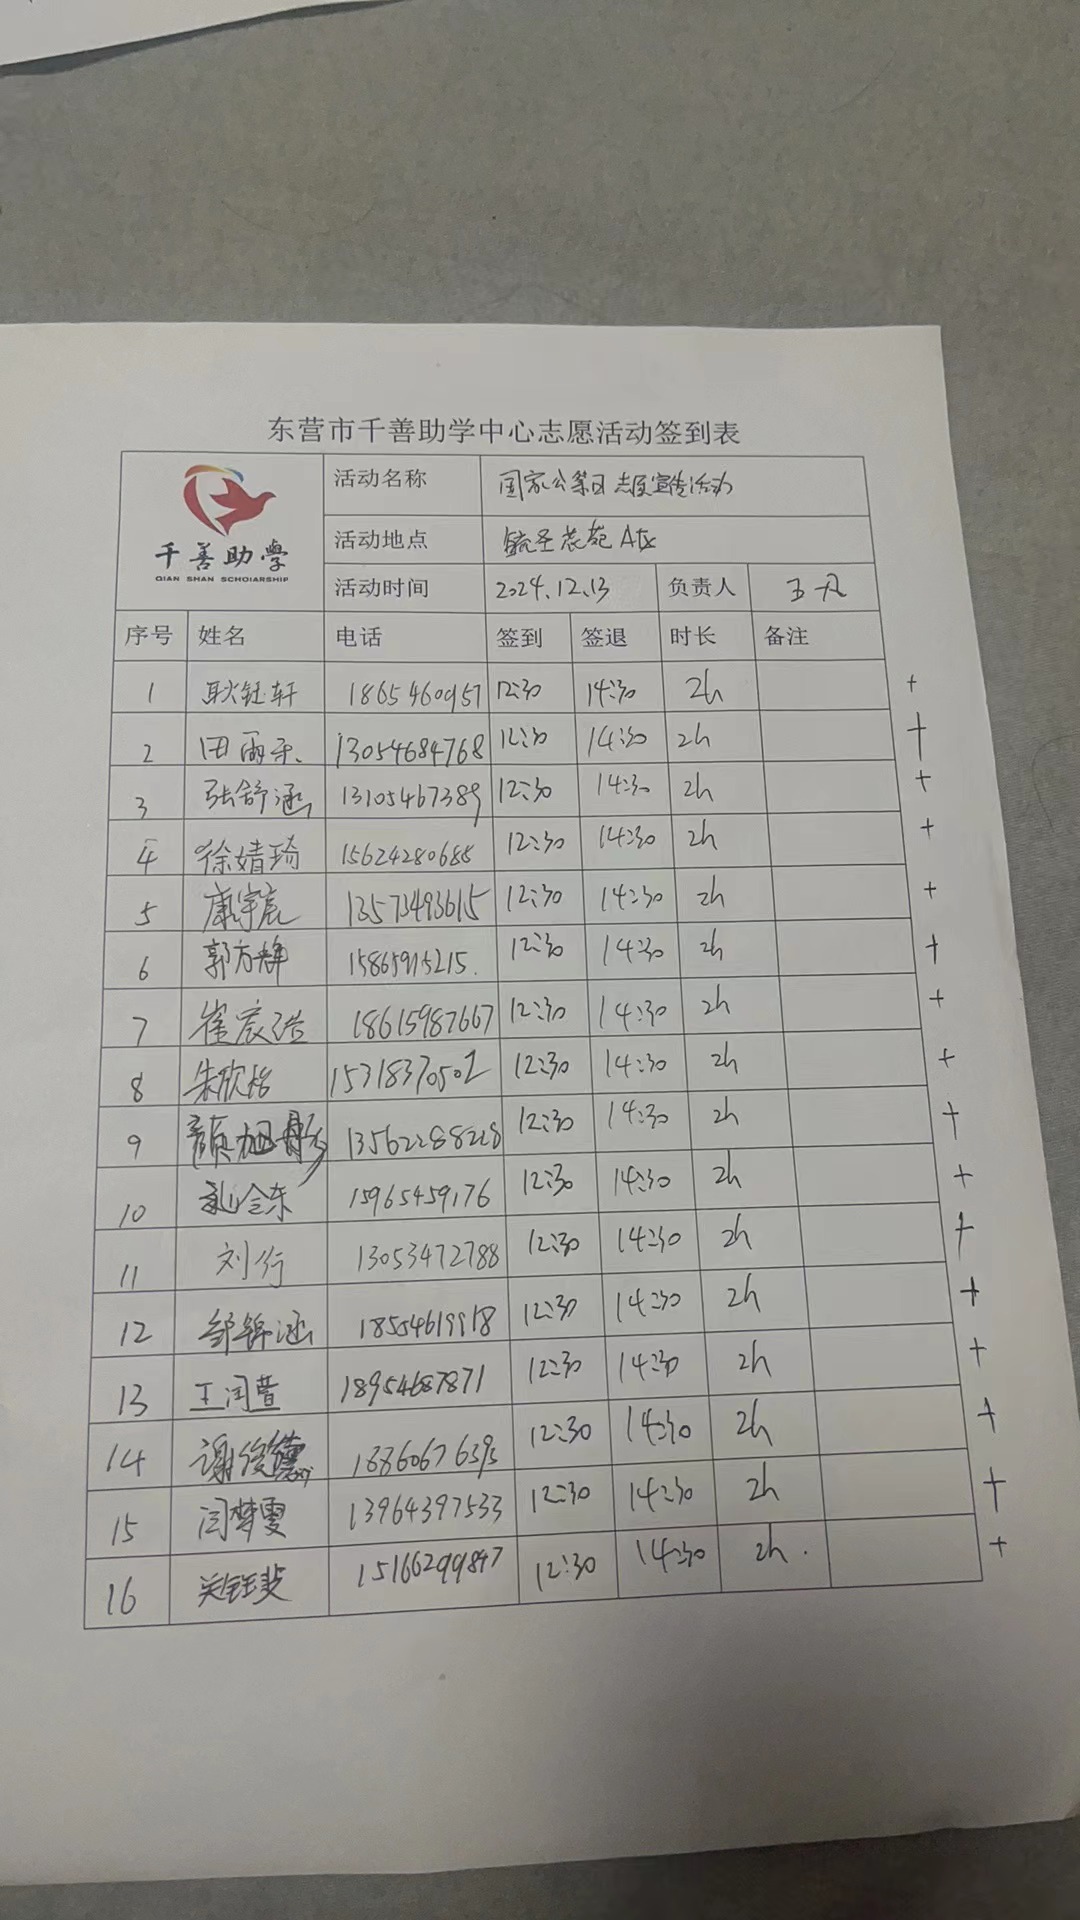 东营市千善助学中心志愿活动签到表
千善助学
QIAN SHAN SCHOLARSHIP
活动名称 国家公祭日志愿宣传活动
活动地点 毓圣花苑A区
活动时间 2024.12.13 负责人 王凡
序号 姓名 电话 签到 签退 时长 备注
1 耿钰轩 1865460957 12:30 14:30 2h +
2 田雨禾 13054684768 12:30 14:30 2h +
3 张舒涵 13105467389 12:30 14:30 2h +
4 徐婧琦 15624280685 12:30 14:30 2h +
5 康宇宸 13573493615 12:30 14:30 2h +
6 郭方 15865915215. 12:30 14:30 2h +
7 崔宸浩 18615987667 12:30 14:30 2h +
8 朱欣怡 15318370502 12:30 14:30 2h +
9 颜旭彤 13562288228 12:30 14:30 2h +
10 15965459176 12:30 14:30 2h +
11 刘行 13053472788 12:30 14:30 2h +
12 邹锦涵 18554619918 12:30 14:30 2h +
13 王闰晋 18954687871 12:30 14:30 2h +
14 谢俊德 18860676393 12:30 14:30 2h +
15 闫梦雯 13964397533 12:30 14:30 2h +
16 关钰斐 15166299847 12:30 14:30 2h. +